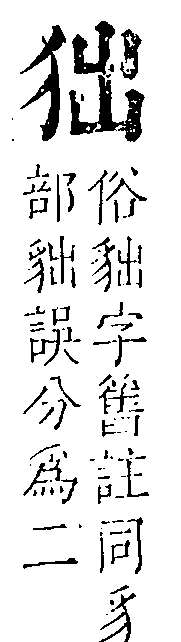 俗貀字舊註同豸
部貀誤分爲二